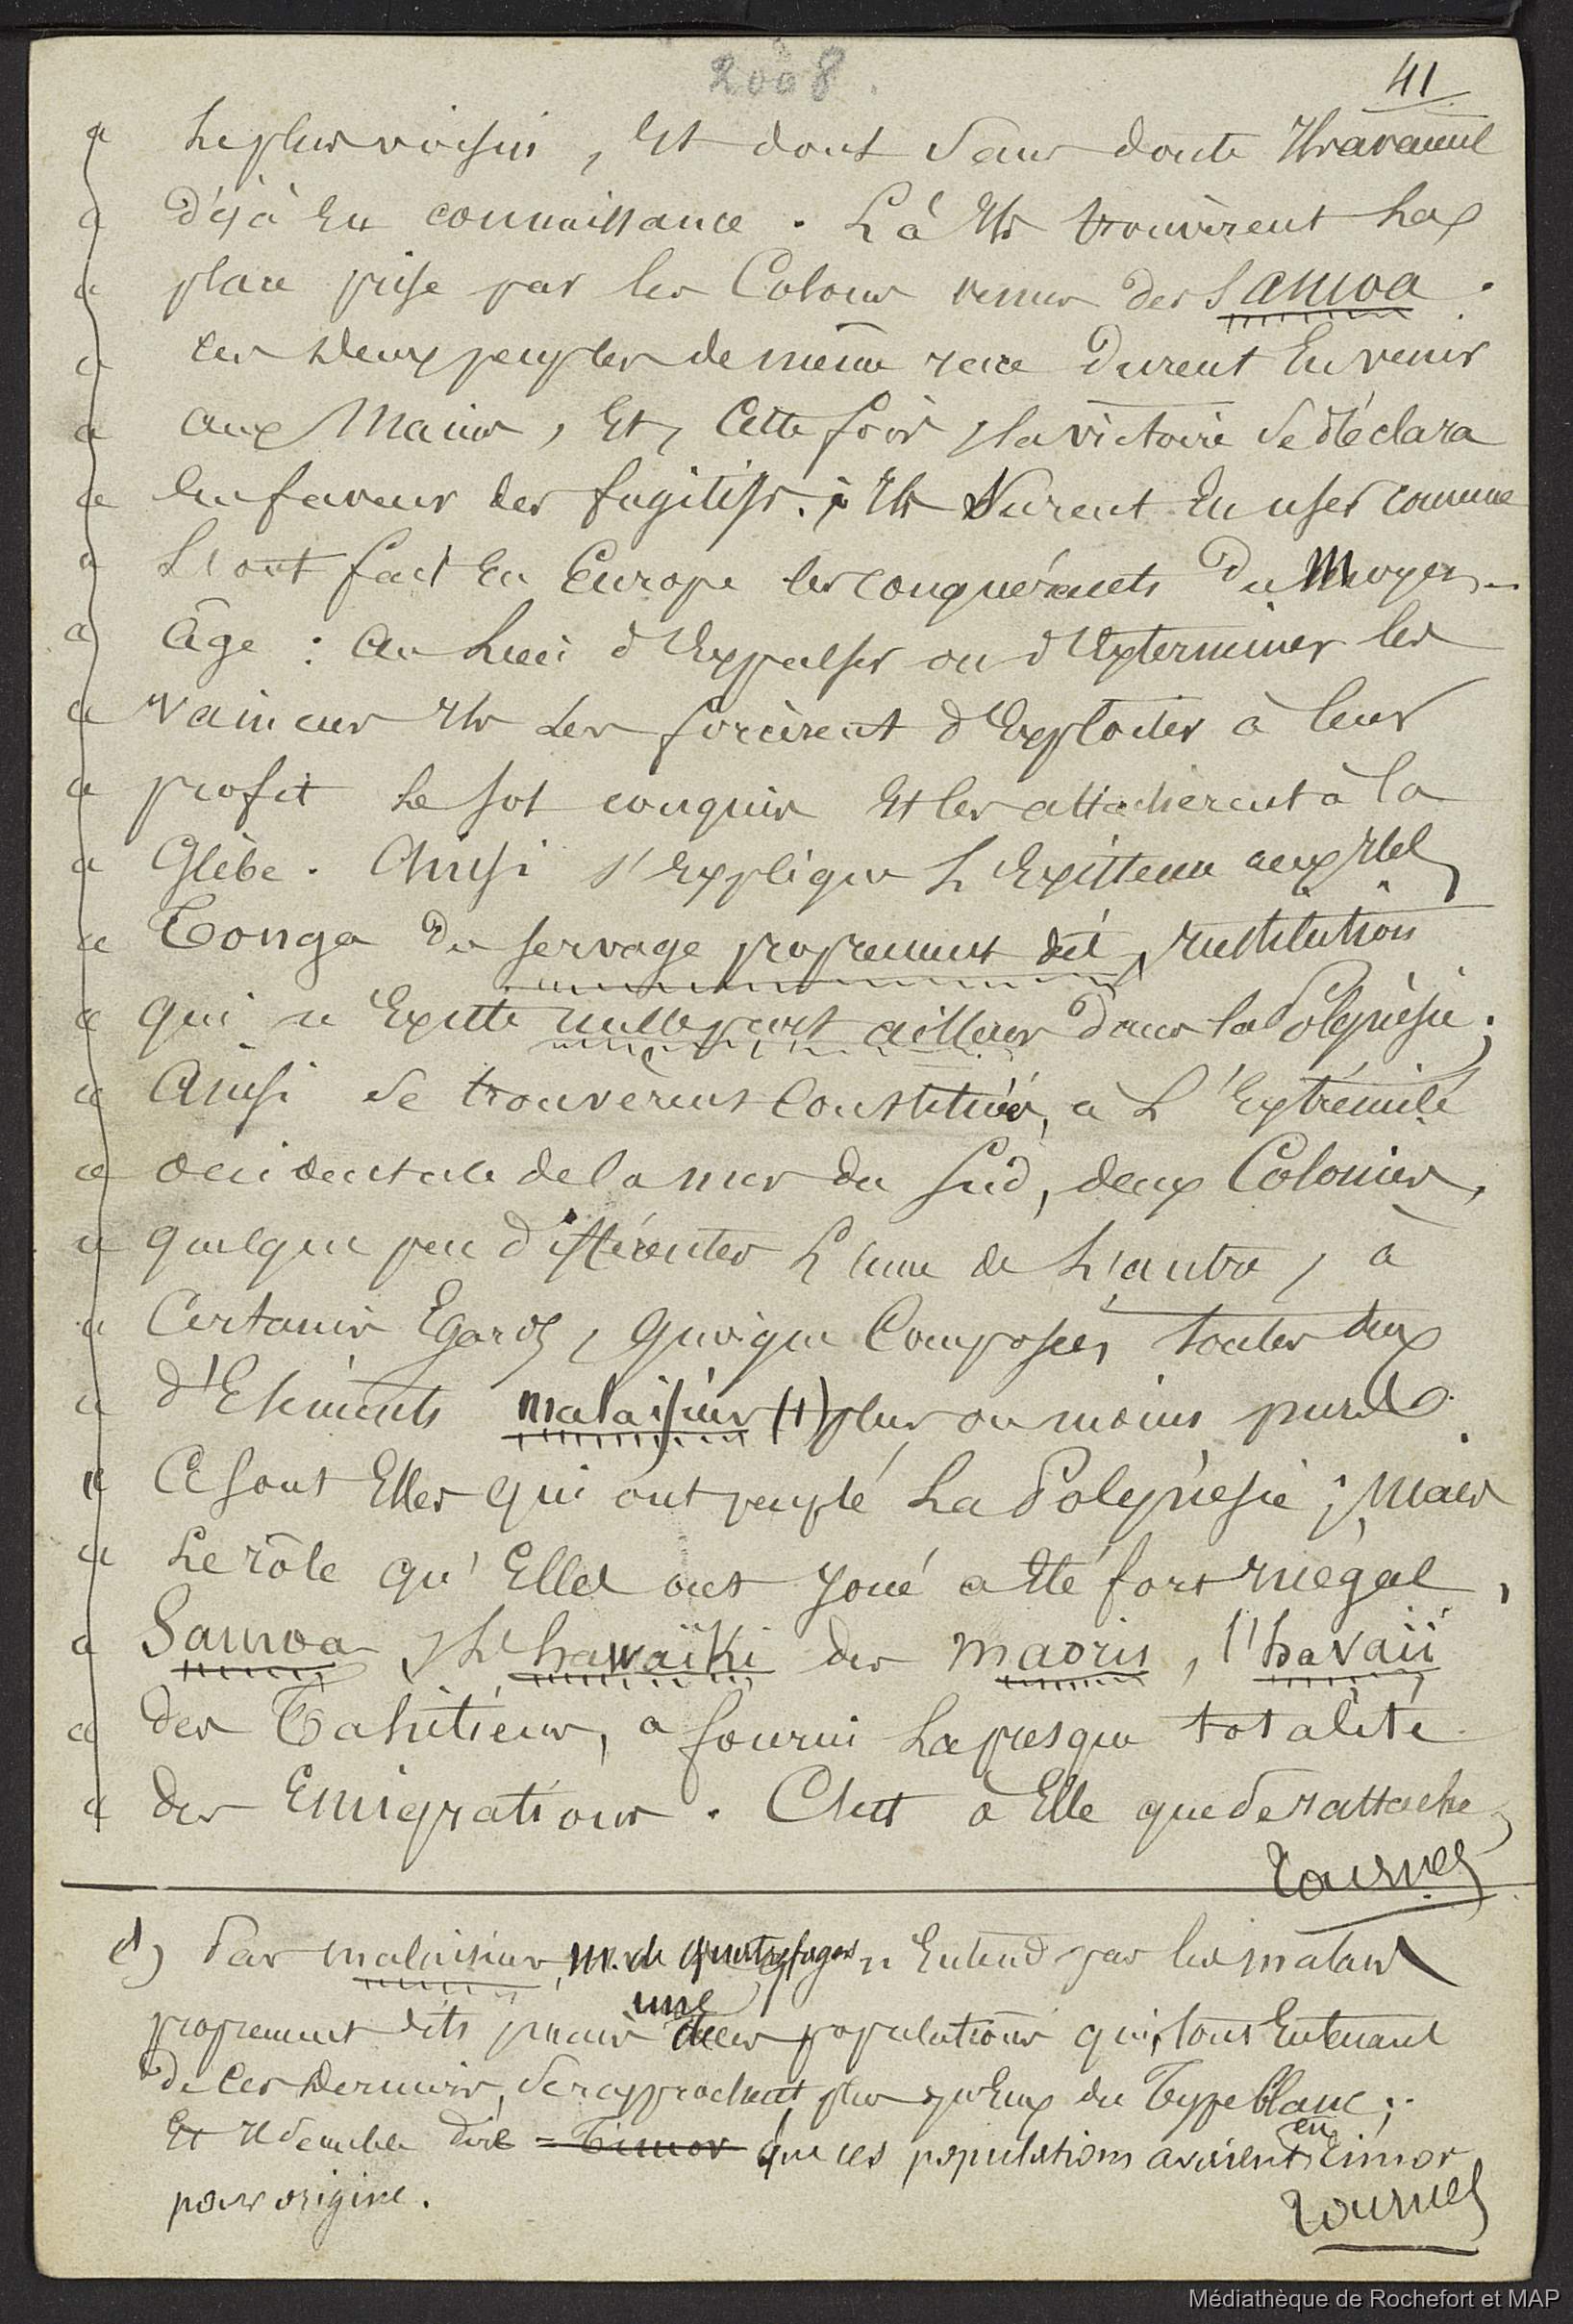 2008.
41
« le plus voisin, et dont sans doute Ils avaient
« déjà Eu connaissance. Là Ils trouvèrent la
« place prise par les Colons venus des Samoa.
« Ces deux peuples de même race durent En venir
« aux Mains, Et, Cette fois, la victoire se déclara
« En faveur des fugitifs. Ils Surent En user comme
« L'ont fait En Europe les conquérants Du Moyen-
« âge : au Lieu d'Expulser ou d'Exterminer les
« vaincus Ils Les forcèrent d'Exploiter à leur
« profit Le sol conquis Et les attachèrent à la
« Glèbe. Ainsi s'Explique L'Existence aux Iles
« Tonga Du servage proprement dit, Institution
« qui n'Existe nulle part ailleurs Dans la Polynésie;
« Ainsi se trouvèrent Constituées, à L'Extrémité
« occidentale de la mer du Sud, deux Colonies,
« quelque peu Différentes L'une de L'autre, à
« Certains Egards, quoique Composées toutes deux
« d'Eléments malaisiens (1) plus ou moins purs.
« Ce sont Elles qui ont peuplé La Polynésie; Mais
« Le rôle qu'Elles ont Joué a Eté fort Inégal,
« Samoa, L'hawaïki des maoris, l'havaïi
« des Tahitiens, a fourni La presque totalité
« des Emigrations. C'est à Elle que se rattache
tournez
1) Par malaisiens, M. de Quatrefages n'Entend pas les malais
proprement dits mais une des populations qui, tout En tenant
De Ces Derniers, se rapprochent plus qu'Eux du Type blanc;
Et Il semble dire = Timor que ces populations avaient en Timor
pour origine.
tournez
Médiathèque de Rochefort et MAP